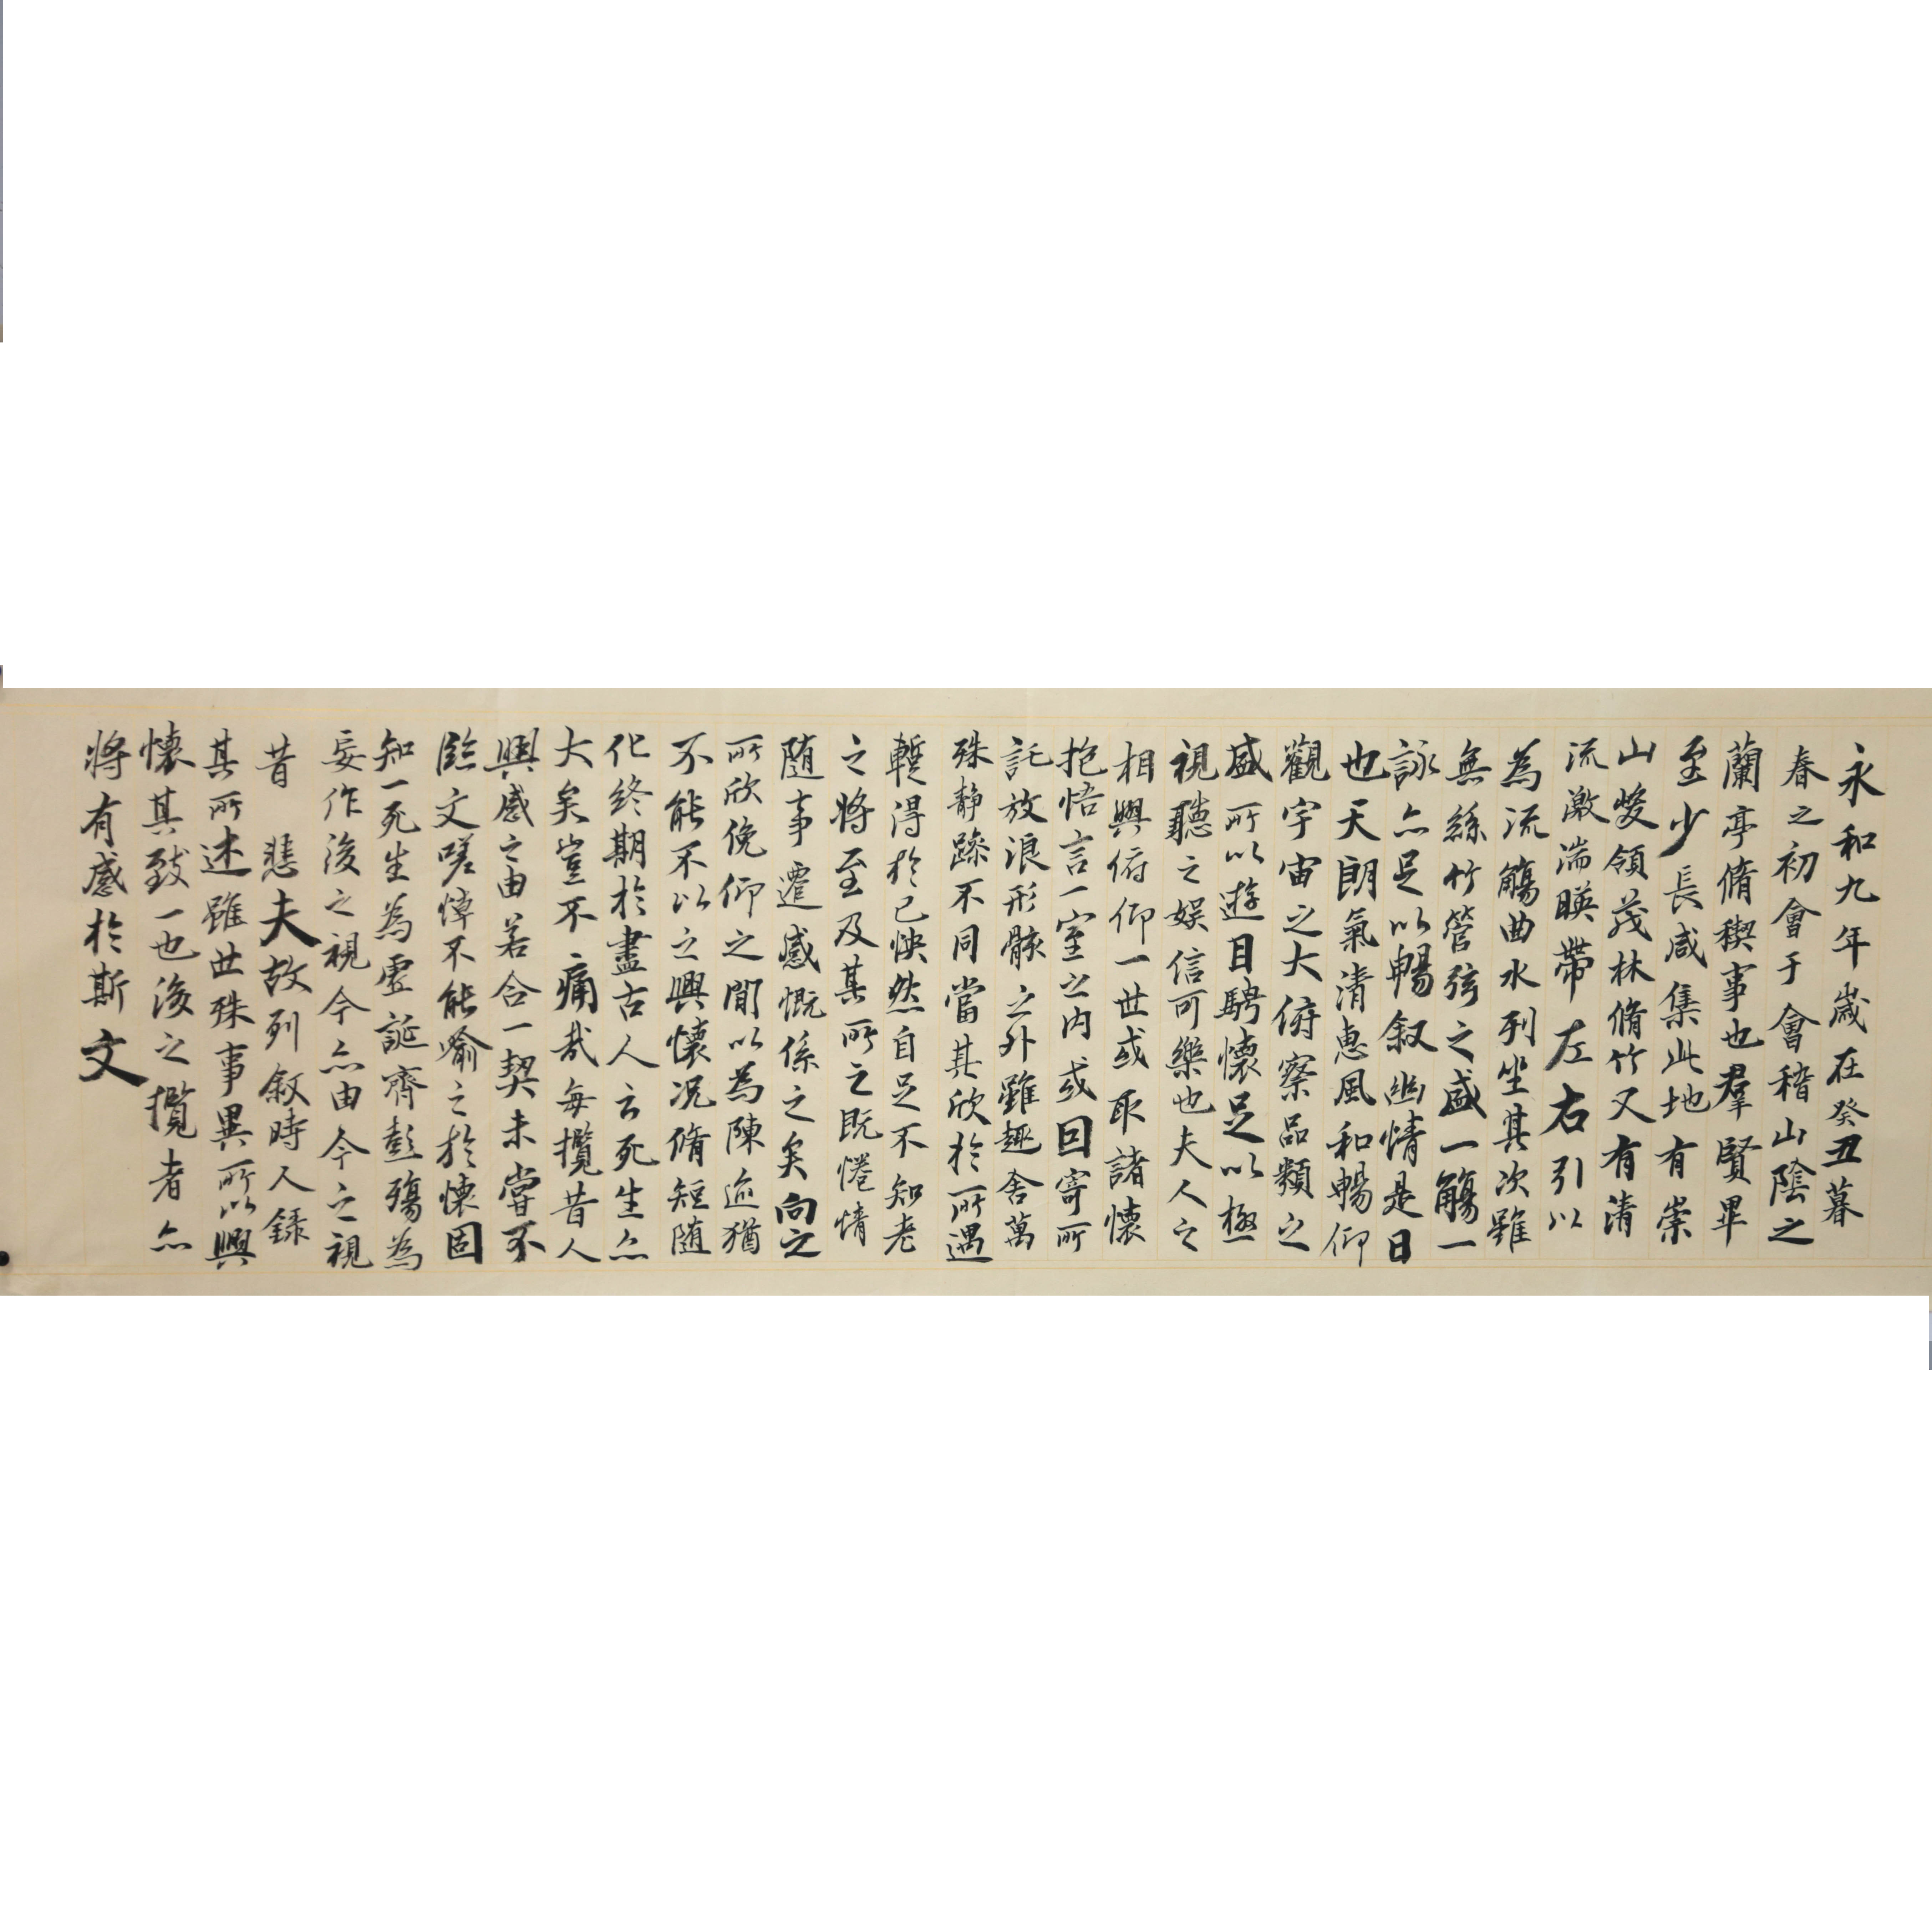 永和九年歲在癸丑暮
春之初會于會稽山陰之
蘭亭脩稧事也羣賢畢
至少長咸集此地有崇
山峻領茂林脩竹又有清
流激湍暎帶左右引以
為流觴曲水列坐其次雖
無絲竹管弦之盛一觴一
詠亦足以暢叙幽情是日
也天朗氣清惠風和暢仰
觀宇宙之大俯察品類之
盛所以遊目騁懷足以極
視聽之娛信可樂也夫人之
相與俯仰一世或取諸懷
抱悟言一室之内或因寄所
託放浪形骸之外雖趣舍萬
殊静躁不同當其欣於所遇
蹔得於己怏然自足不知老
之將至及其所之既惓情
隨事遷感慨係之矣向之
所欣俛仰之閒以為陳迹猶
不能不以之興懷况脩短隨
化終期於盡古人云死生亦
大矣豈不痛哉每攬昔人
興感之由若合一契未嘗不
臨文嗟悼不能喻之於懷固
知一死生為虚誕齊彭殤為
妄作後之視今亦由今之視
昔 悲夫故列叙時人録
其所述雖世殊事異所以興
懷其致一也後之攬者亦
將有感於斯文